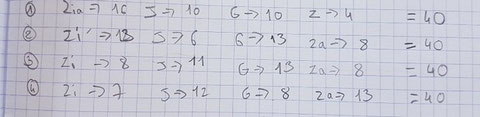 ① Zia → 16 J → 10 G → 10 Z → 4 = 40
② Zi → 13 J → 6 G → 13 Za → 8 = 40
③ Zi → 8 J → 11 G → 13 Za → 8 = 40
④ Zi → 7 J → 12 G → 8 Za → 13 = 40